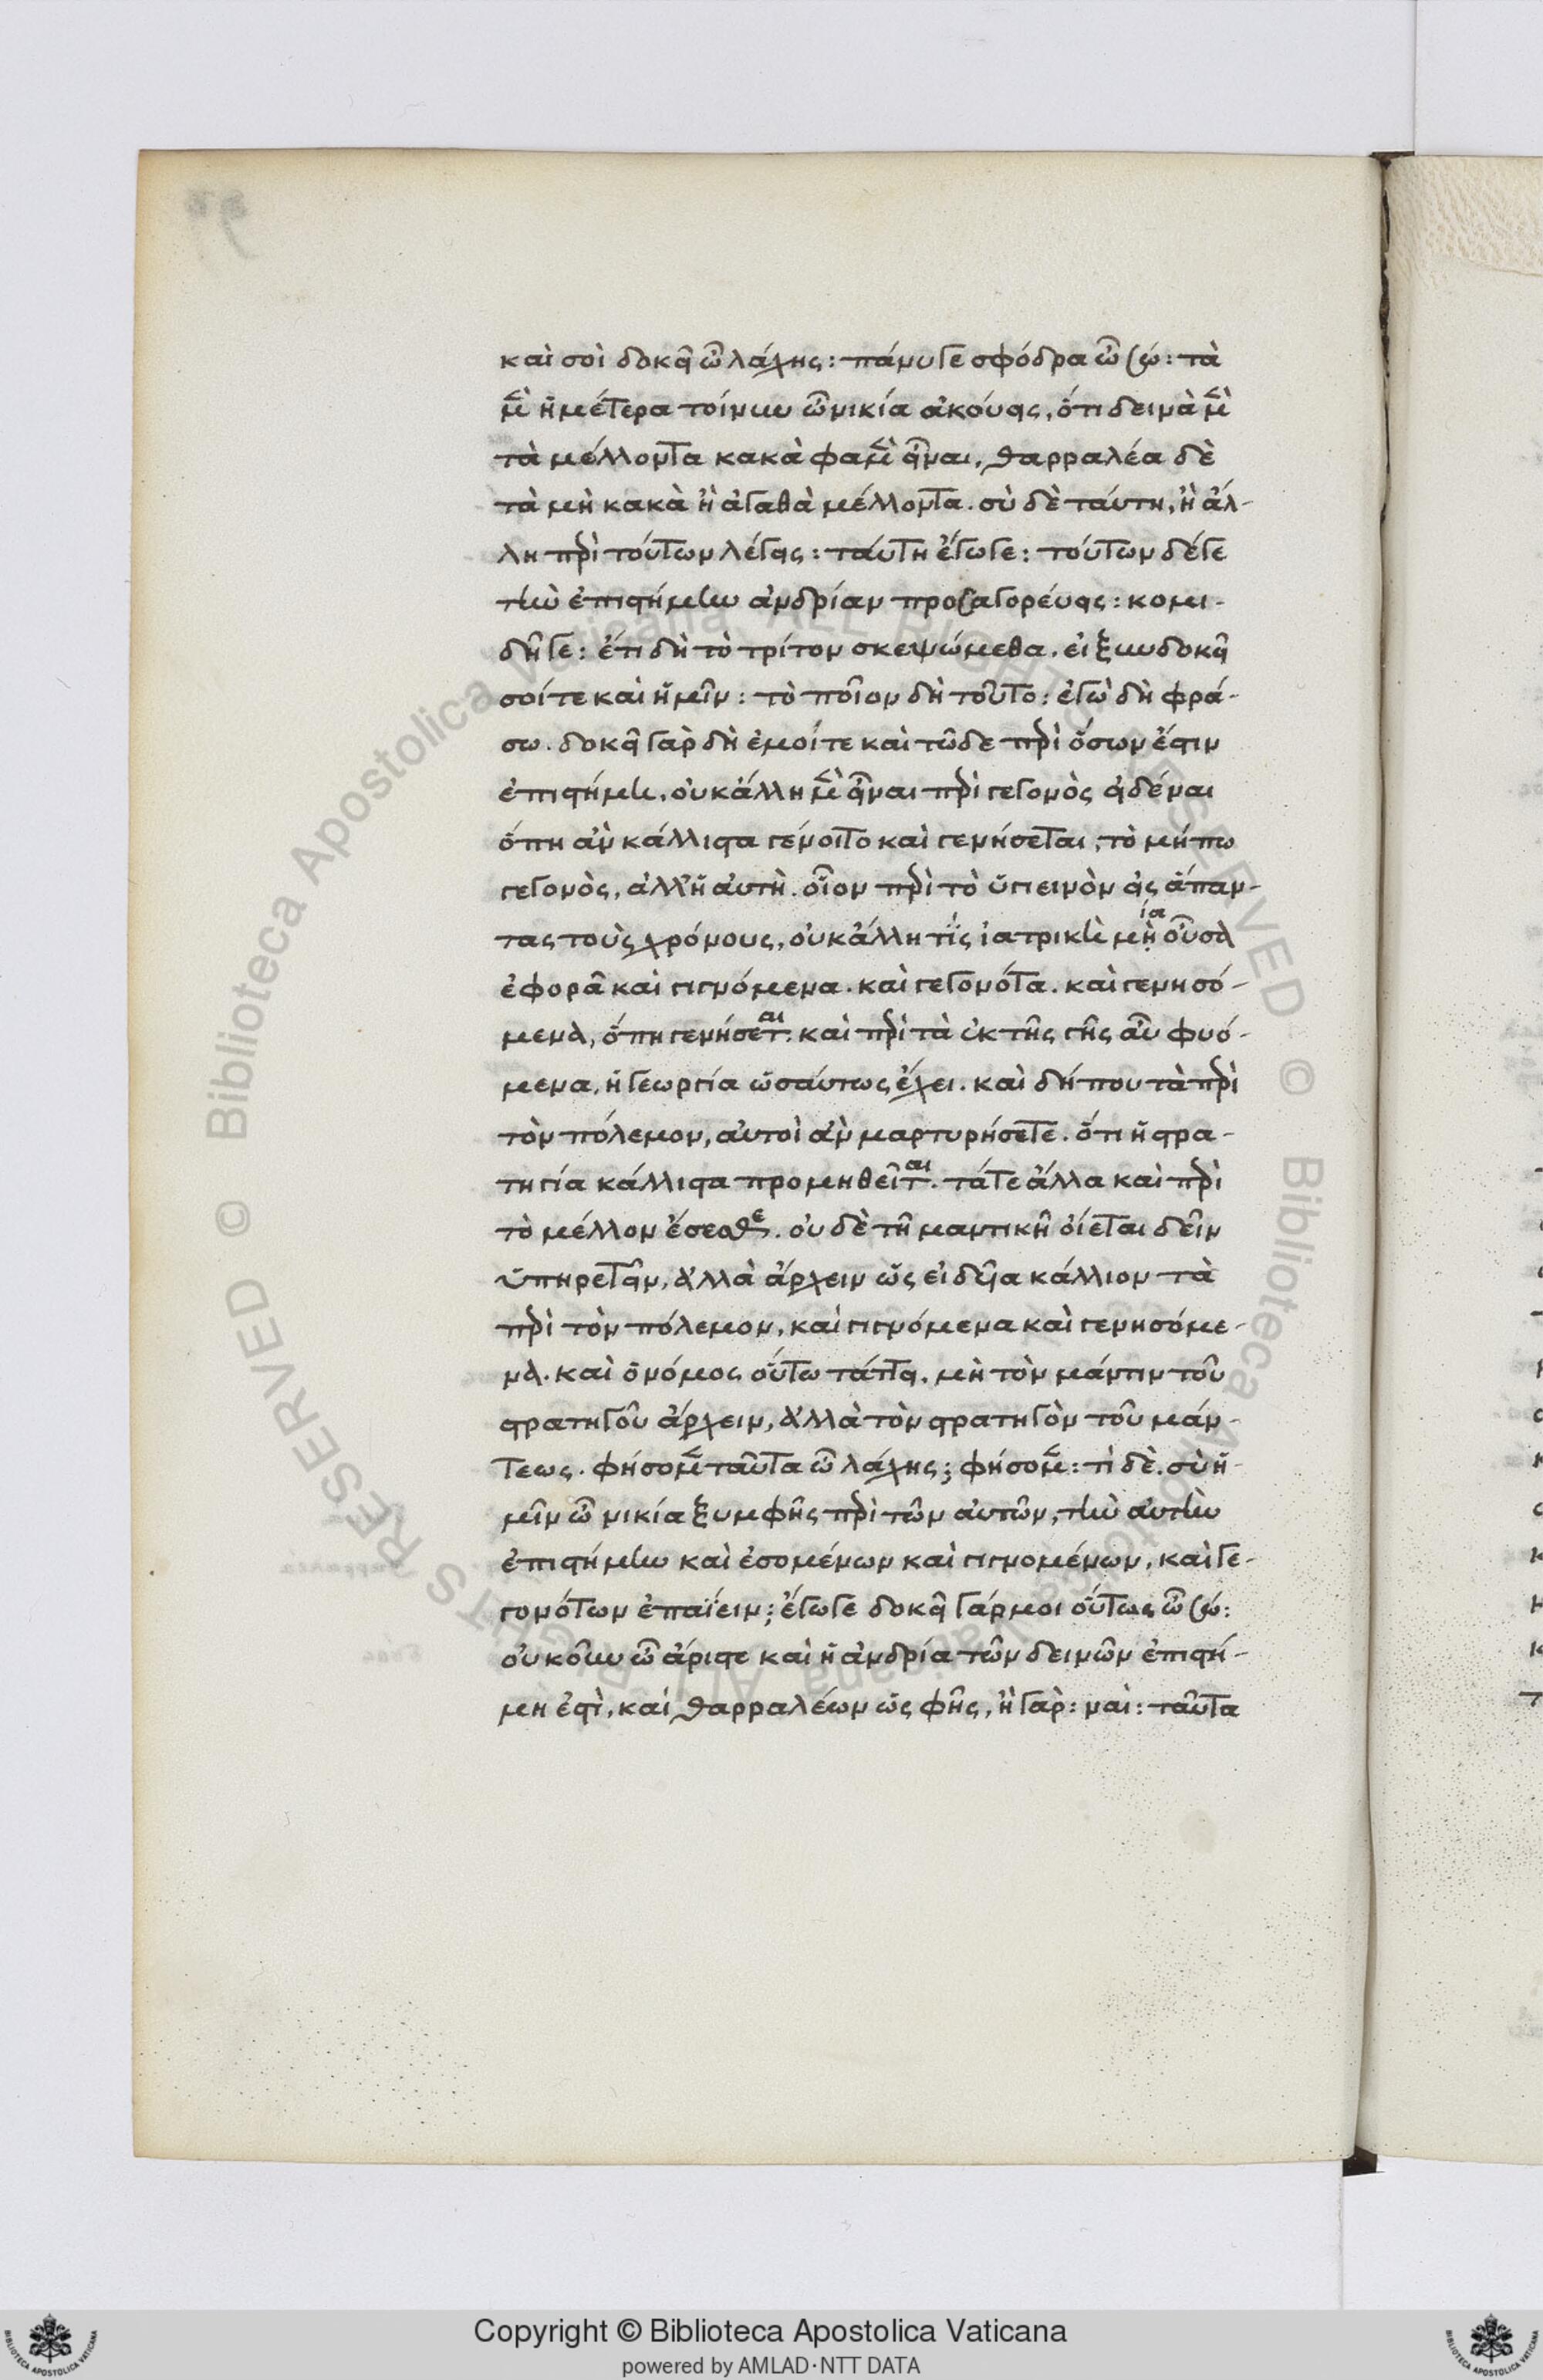 καὶ σοὶ δοκεῖ ὦ λάχης: πάνυ γε σφόδρα ὦ σώ: τὰ
μὲν ἡμέτερα τοίνυν ὦ νικία ἀκούεις, ὅτι δεινὰ μὲν
τὰ μέλλοντα κακὰ φαμὲν εἶναι, θαρραλέα δὲ
τὰ μὴ κακὰ ἢ ἀγαθὰ μέλλοντα. σὺ δὲ ταύτη, ἢ ἄλ-
λη περὶ τούτων λέγεις: ταύτη ἔγωγε: τούτων δέ γε
τὴν ἐπιστήμην ἀνδρίαν προσαγορεύεις: κομι-
δῆ γε: ἔτι δὴ τὸ τρίτον σκεψώμεθα. εἰ ξυνδοκεῖ
σοί τε καὶ ἡμῖν: τὸ ποῖον δὴ τοῦτο: ἐγὼ δὴ φρά-
σω. δοκεῖ γὰρ δὴ ἐμοί τε καὶ τῶδε περὶ ὅσων ἔστιν
ἐπιστήμη, οὐκ ἄλλη μὲν εἶναι περὶ γεγονὸς εἰδέναι
ὅπη ἂν κάλλιστα γένοιτο καὶ γενήσεται, τὸ μήπω
γεγονὸς, ἀλλ' ἡ αὐτὴ. οἷον περὶ τὸ ὑγιεινὸν εἰς ἅπαν-
τας τοὺς χρόνους, οὐκ ἄλλη τίς ἰατρικὴ μὴ ία οὖσα
ἐφορᾶ καὶ γιγνόμενα. καὶ γεγονότα. καὶ γενησό-
μενα, ὅπη γενήσεται. καὶ περὶ τὰ ἐκ τῆς γῆς αὖ φυό-
μενα, ἡ γεωργία ὡσαύτως ἔχει. καὶ δήπου τὰ περὶ
τὸν πόλεμον, αὐτοὶ ἂν μαρτυρήσετε. ὅτι ἡ στρα-
τηγία κάλλιστα προμηθεῖται. τά τε ἄλλα καὶ περὶ
τὸ μέλλον ἔσεσθε. οὐδὲ τῆ μαντικῆ οἴεται δεῖν
ὑπηρετεῖν, ἀλλὰ ἄρχειν ὡς εἰδεῖα κάλλιον τὰ
περὶ τὸν πόλεμον, καὶ γιγνόμενα καὶ γενησόμε-
να. καὶ ὁ νόμος οὕτω τάττει. μὴ τὸν μάντιν τοῦ
στρατηγοῦ ἄρχειν, ἀλλὰ τὸν στρατηγὸν τοῦ μάν-
τεως. φήσομεν ταῦτα ὦ λάχης; φήσομεν: τί δὲ. σὺ ἡ-
μῖν ὦ νικία ξυμφῆς περὶ τῶν αὐτῶν, τὴν αὐτὴν
ἐπιστήμην καὶ ἐσομένων καὶ γιγνομένων, καὶ γε-
γονότων ἐπαΐειν; ἔγωγε δοκεῖ γάρ μοι οὕτως ὦ σώ:
οὐκοῦν ὦ ἄριστε καὶ ἡ ἀνδρία τῶν δεινῶν ἐπιστή-
μη ἐστὶ, καὶ θαρραλέων ὡς φῆς, ἢ γὰρ: ναὶ: ταῦτα
Copyright © Biblioteca Apostolica Vaticana
powered by AMLAD·NTT DATA